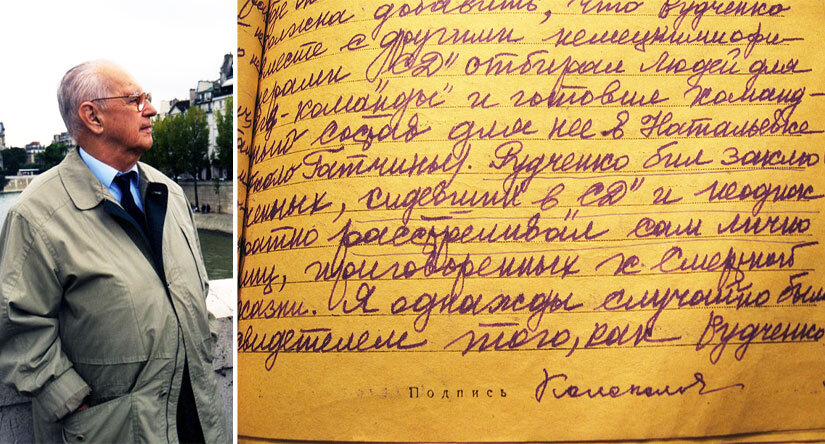 должна добавить, что Рудченко
вместе с другими немецкими офи-
церами "СД" отбирал людей для
команды" и готовил команд-
ный состав для нее в Натальевке
около Гатчины). Рудченко бил заклю
ченных, сидевших в СД" и неоднок
ратно расстреливал сам лично
лиц, приговоренных к смертной
казни. Я однажды случайно была
свидетелем того, как Рудченко
Подпись